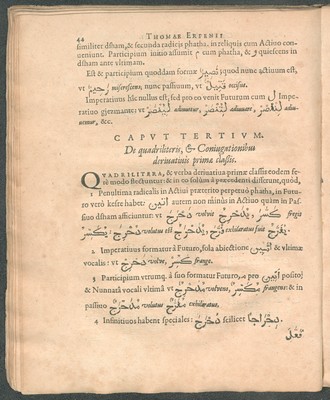 44 THOMAE ERPENII
similiter dsham, & secunda radicis phatha, in reliquis cum Activo con-
veniunt. Participium initio assumit م cum phatha, & و quiescens in
dsham ante ultimam.
Est & participium quoddam formæ نَصِيرٌ quod nunc activum est,
ut رَحِيمٌ misericors, nunc passivum, ut قَتِيلٌ occisus.
Imperativus hîc nullus est, sed pro eo venit Futurum cum لِ Impe-
rativo gjezmante: ut لِيُنْصَرْ adiuvetur, لِتُنْصَرْ adiuvare, لِأُنْصَرْ adiu-
vemur, &c.
CAPUT TERTIUM.
De quadriliteris, & Coniugationibus
derivativis primæ classis.
QUADRILITERA, & verba derivativa primæ classis eodem fe-
rè modo flectuntur: & in eo solùm à præcedenti differunt, quòd,
1 Penultima radicalis in Activi præterito perpetuò phatha, in Futu-
ro verò kesre habet: أتين autem non minùs in Activo quàm in Pas-
sivo dsham afficiuntur: ut دَحْرَجَ volvit يُدَحْرِجُ, كَسَّرَ fregit
يُكَسِّرُ: دُحْرِجَ volutus est يُدَحْرَجُ, فُرِّحَ exhilaratus fuit يُفَرَّحُ.
2 Imperativus formatur à Futuro, sola abiectione أتين & ultimæ
vocalis: ut دَحْرِجْ volve, كَسِّرْ frange.
3 Participium utrumq. à suo formatur Futuro, م pro أتين posito;
& Nunnatâ vocali ultimâ ut مُدَحْرِجٌ volvens, مُكَسِّرٌ frangens: & in
passivo مُدَحْرَجٌ volutus مُفَرَّحٌ exhilaratus.
4 Infinitivos habent speciales: دَحْرَجَ scilicet دِحْرَاجًا.
فَعَّلَ